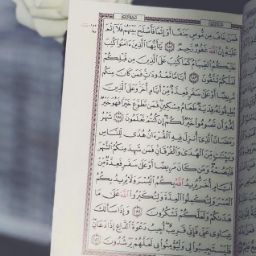 فَمَنْ خَافَ مِن مُّوصٍ جَنَفًا أَوْ إِثْمًا فَأَصْلَحَ بَيْنَهُمْ فَلَآ إِثْمَ
عَلَيْهِ إِنَّ ٱللَّهَ غَفُورٌ رَّحِيمٌ ١٨٢ يَٰٓأَيُّهَا ٱلَّذِينَ ءَامَنُوا۟ كُتِبَ
عَلَيْكُمُ ٱلصِّيَامُ كَمَا كُتِبَ عَلَى ٱلَّذِينَ مِن قَبْلِكُمْ
لَعَلَّكُمْ تَتَّقُونَ ١٨٣ أَيَّامًا مَّعْدُودَٰتٍ فَمَن كَانَ مِنكُم
مَّرِيضًا أَوْ عَلَىٰ سَفَرٍ فَعِدَّةٌ مِّنْ أَيَّامٍ أُخَرَ وَعَلَى ٱلَّذِينَ
يُطِيقُونَهُۥ فِدْيَةٌ طَعَامُ مِسْكِينٍ فَمَن تَطَوَّعَ خَيْرًا فَهُوَ خَيْرٌ
لَّهُۥ وَأَن تَصُومُوا۟ خَيْرٌ لَّكُمْ إِن كُنتُمْ تَعْلَمُونَ ١٨٤ شَهْرُ
رَمَضَانَ ٱلَّذِىٓ أُنزِلَ فِيهِ ٱلْقُرْءَانُ هُدًى لِّلنَّاسِ
وَبَيِّنَٰتٍ مِّنَ ٱلْهُدَىٰ وَٱلْفُرْقَانِ فَمَن شَهِدَ مِنكُمُ ٱلشَّهْرَ
فَلْيَصُمْهُ وَمَن كَانَ مَرِيضًا أَوْ عَلَىٰ سَفَرٍ فَعِدَّةٌ مِّنْ
أَيَّامٍ أُخَرَ يُرِيدُ ٱللَّهُ بِكُمُ ٱلْيُسْرَ وَلَا يُرِيدُ بِكُمُ
ٱلْعُسْرَ وَلِتُكْمِلُوا۟ ٱلْعِدَّةَ وَلِتُكَبِّرُوا۟ ٱللَّهَ عَلَىٰ مَا
هَدَىٰكُمْ وَلَعَلَّكُمْ تَشْكُرُونَ ١٨٥ وَإِذَا سَأَلَكَ
عِبَادِى عَنِّى فَإِنِّى قَرِيبٌ أُجِيبُ دَعْوَةَ ٱلدَّاعِ إِذَا دَعَانِ
فَلْيَسْتَجِيبُوا۟ لِى وَلْيُؤْمِنُوا۟ بِى لَعَلَّهُمْ يَرْشُدُونَ ١٨٦